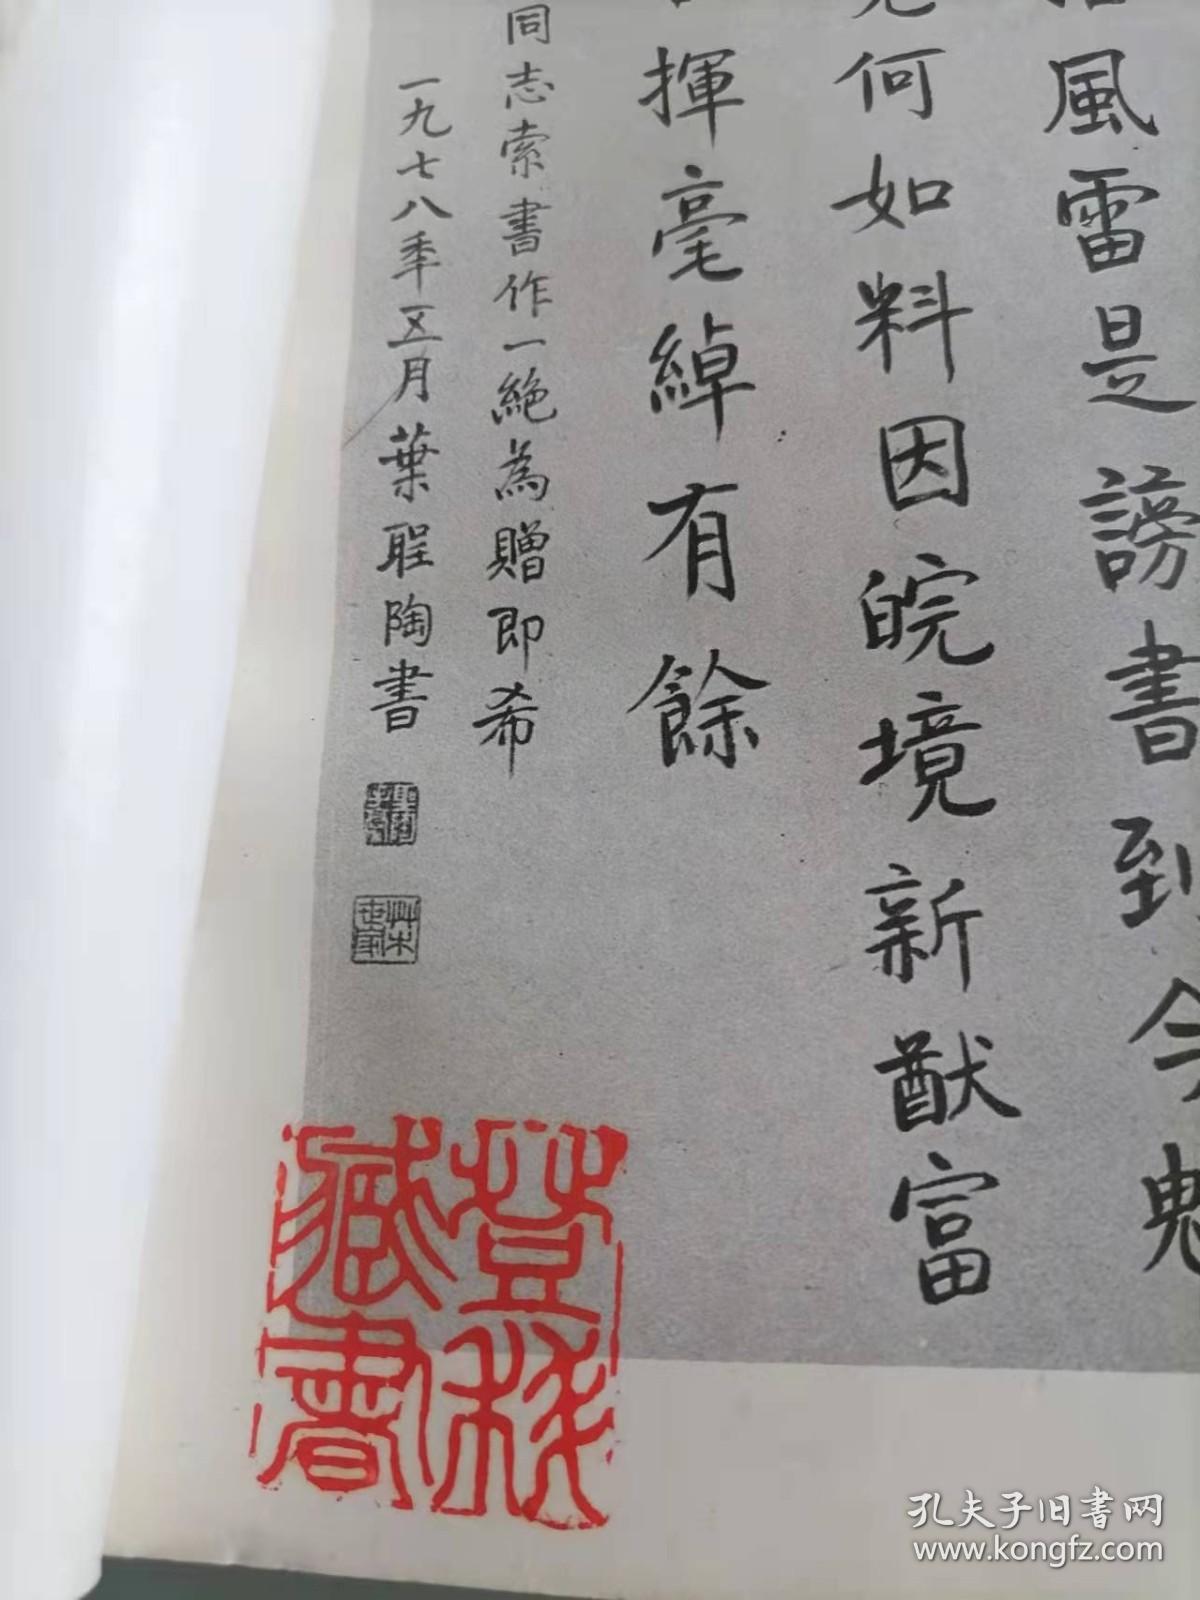 風雷是謗書到今
何如料因皖境新猷富
揮毫綽有餘
同志索書作一絕為贈即希
一九七八年五月葉聖陶書
登
藏書
孔夫子旧书网
www.kongfz.com